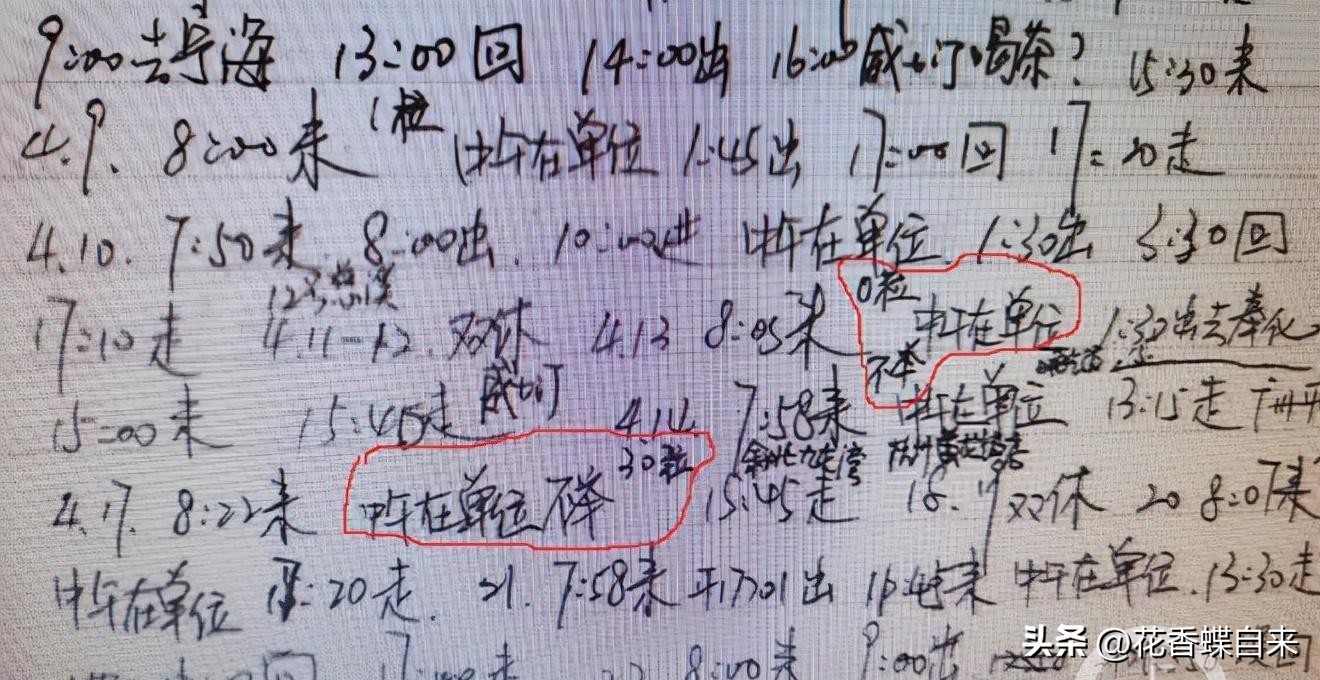 9:00去宁海 13:00回 14:00出 16:00 喝茶? 15:30来
4.9. 8:00来 1粒 中午在单位 1:45出 17:00回 17:20走
4.10. 7:50来 8:00出. 10:00走 中午在单位. 1:30出 3:30回
17:10走 4.11-12.双休 4.13 8:05来 0粒 中午在单位 1:30出去奉化
不举
15:00来 15:45走 4.14. 7:58来 中午在单位 13:15走
4.17. 8:22来 中午在单位 不举 30粒 15:45走 18.19双休 20 8:07来
中午在单位 :20走. 21. 7:58来 出 来 中午在单位.13:30走
17:00来 22 8:00来 9:00出 回
头条 @花香蝶自来